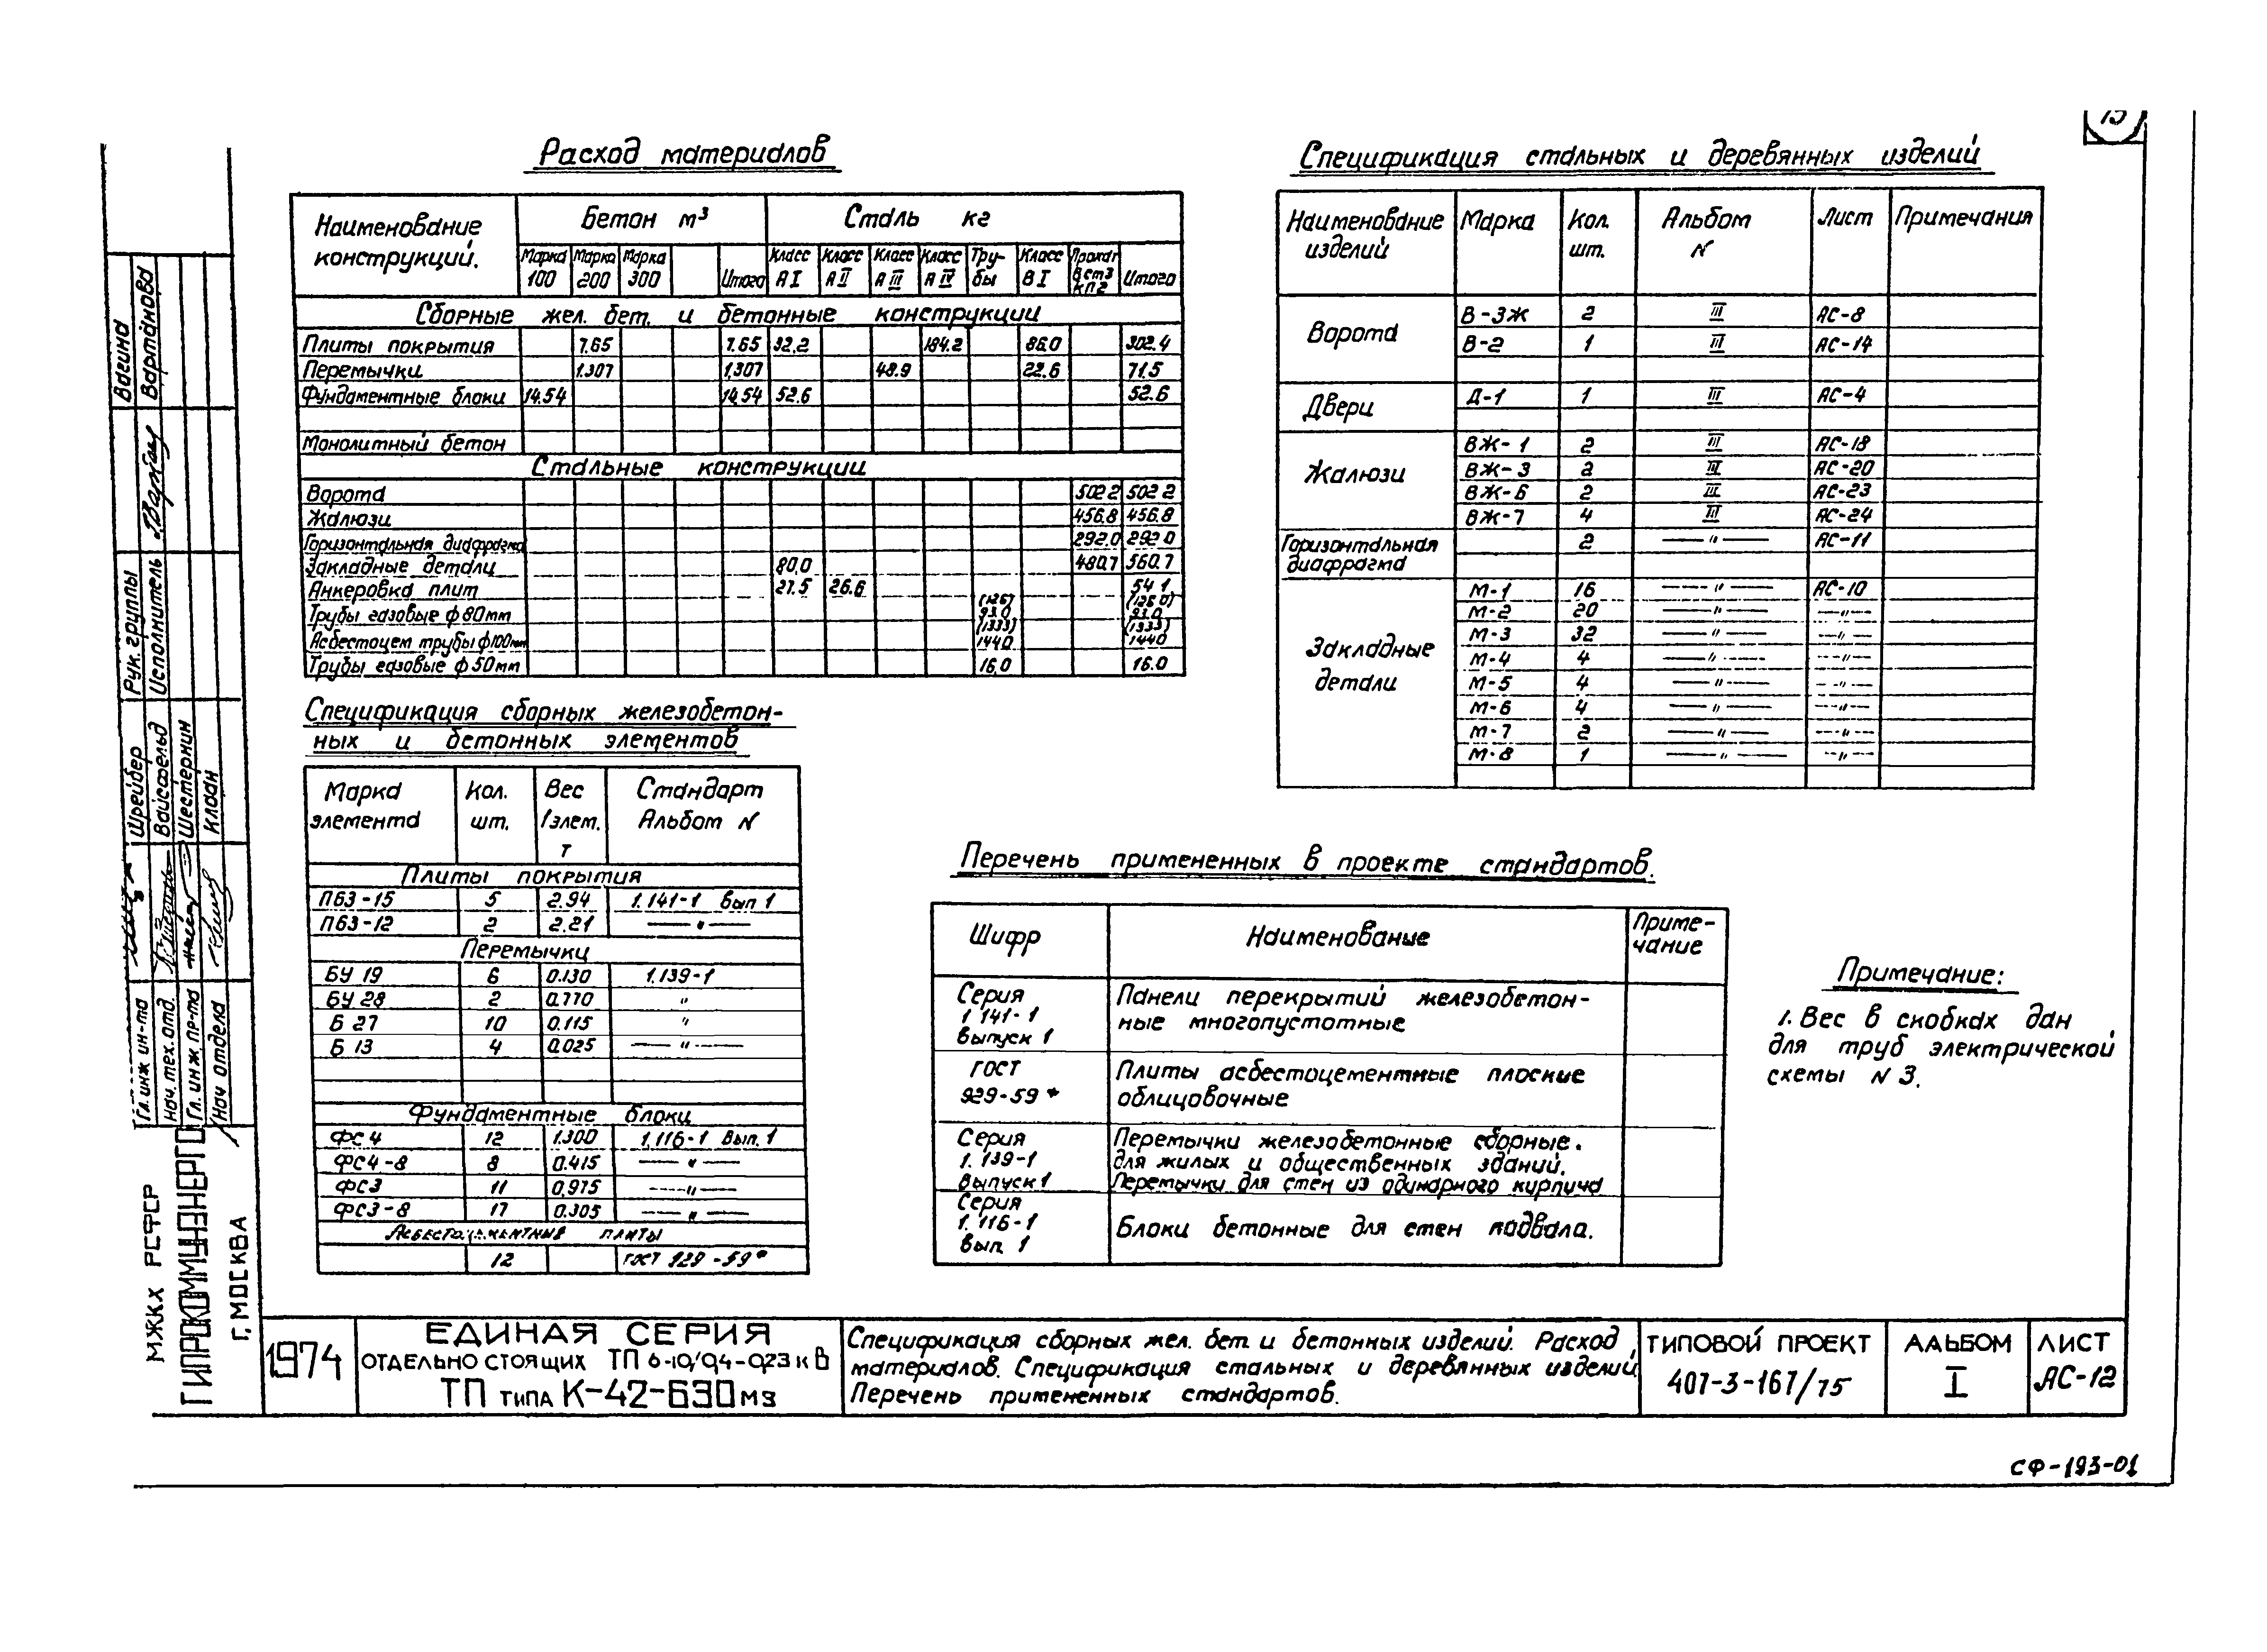 15
Расход материалов
Наименование конструкций. Бетон м³ Сталь кг
Марка 100 Марка 200 Марка 300 Итого Класс А I Класс А II Класс А III Класс А IV Тру-бы Класс В I Прокат Вст3 кп2 Итого
Сборные жел. бет. и бетонные конструкции
Плиты покрытия 7.65 7.65 32.2 184.2 86.0 302.4
Перемычки 1.307 1.307 48.9 22.6 71.5
Фундаментные блоки 14.54 14.54 52.6 52.6
Монолитный бетон
Стальные конструкции
Ворота 502 2 502 2
Жалюзи 456.8 456.8
Горизонтальная диафрагма 292.0 292 0
Закладные детали 80.0 480.7 560.7
Анкеровка плит 27.5 26.6 54 1
Трубы газовые ф 80мм (126) 93.0 (126 0) 93.0
Асбестоцем трубы ф100мм (1333) 1440 (1333) 1440
Трубы газовые ф 50мм 16.0 16.0
Спецификация сборных железобетон-
ных и бетонных элементов
Марка элемента Кол. шт. Вес 1элем. т Стандарт Альбом N
Плиты покрытия
ПБ3-15 5 2.94 1.141-1 Вып 1
ПБ3-12 2 2.21 — " —
Перемычки
БУ 19 6 0.130 1.139-1
БУ 28 2 0.770 "
Б 27 10 0.115 "
Б 13 4 0.025 — " —
Фундаментные блоки
ФС 4 12 1.300 1.116-1 Вып. 1
ФС4-8 8 0.415 — " —
ФС3 11 0,975 — " —
ФС3-8 17 0.305 — " —
Асбестоцементные плиты
12 ГОСТ 929-59*
Спецификация стальных и деревянных изделий
Наименование изделий Марка Кол. шт. Альбом N Лист Примечания
Ворота В-3Ж 2 III АС-8
В-2 1 III АС-14
Двери Д-1 1 III АС-4
Жалюзи ВЖ-1 2 III АС-18
ВЖ-3 2 III АС-20
ВЖ-6 2 III АС-23
ВЖ-7 4 III АС-24
Горизонтальная диафрагма 2 — " — АС-11
Закладные детали М-1 16 — " — АС-10
М-2 20 — " — — " —
М-3 32 — " — — " —
М-4 4 — " — — " —
М-5 4 — " — — " —
М-6 4 — " — — " —
М-7 2 — " — — " —
М-8 1 — " — — " —
Перечень примененных в проекте стандартов.
Шифр Наименование Приме-чание
Серия 1 141-1 выпуск 1 Панели перекрытий железобетон-ные многопустотные
ГОСТ 929-59* Плиты асбестоцементные плоские облицовочные
Серия 1. 139-1 выпуск 1 Перемычки железобетонные сборные. для жилых и общественных зданий. Перемычки для стен из одинарного кирпича
Серия 1. 116-1 вып. 1 Блоки бетонные для стен подвала.
Примечание:
1. Вес в скобках дан
для труб электрической
схемы N 3.
1974
ЕДИНАЯ СЕРИЯ
ОТДЕЛЬНО СТОЯЩИХ ТП 6-10/0,4-0,23 кВ
ТП ТИПА К-42-630 М3
Спецификация сборных жел. бет. и бетонных изделий. Расход
материалов. Спецификация стальных и деревянных изделий
Перечень примененных стандартов.
ТИПОВОЙ ПРОЕКТ
407-3-167/75
АЛЬБОМ
I
ЛИСТ
АС-12
СФ-193-01
МЖКХ РСФСР
ГИПРОКОММУНЭНЕРГО
Г. МОСКВА
Гл. инж ин-та Шрейбер
Нач. тех. отд. Вайсфельд
Гл. инж. пр-та Шестернин
Нач отдела Клаан
Рук. группы Вагина
Исполнитель Вартанова